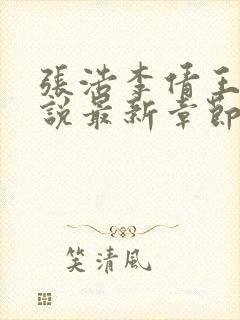 張浩李倩王
說最新章節
笑清風